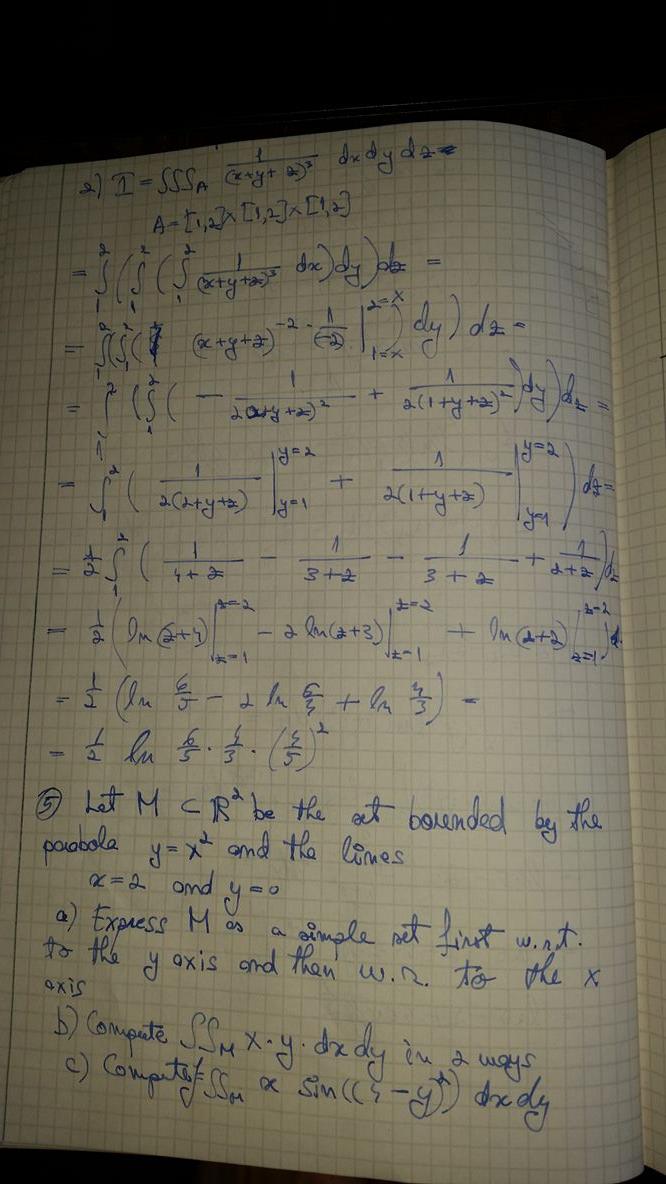 2) I = ∫∫∫_A 1/(x+y+z)³ dx dy dz =
A = [1,2]×[1,2]×[1,2]
= ∫₁² (∫₁² (∫₁² 1/(x+y+z)³ dx) dy) dz =
= ∫₁² (∫₁² ( (x+y+z)⁻² · 1/(-2) |_{1=x}^{2=x} ) dy) dz =
= ∫₁² (∫₁² ( - 1/2(2+y+z)² + 1/2(1+y+z)² ) dy) dz =
= ∫₁² ( 1/2(2+y+z) |_{y=1}^{y=2} + 1/2(1+y+z) |_{y=1}^{y=2} ) dz =
= 1/2 ∫₁² ( 1/4+z - 1/3+z - 1/3+z + 1/2+z ) dz
= 1/2 ( ln(z+4) |_{z=1}^{z=2} - 2 ln(z+3) |_{z=1}^{z=2} + ln(z+2) |_{z=1}^{z=2} )
= 1/2 ( ln 6/5 - 2 ln 5/4 + ln 4/3 ) =
= 1/2 ln 6/5 · 4/3 · (4/5)²
⑤ Let M ⊂ ℝ² be the set bounded by the
parabola y = x² and the lines
x = 2 and y = 0
a) Express M as a simple set first w.r.t.
to the y axis and then w.r. to the x
axis
b) Compute ∫∫_M x·y·dx dy in 2 ways
c) Compute ∫∫_M x sin((4-y)²) dx dy